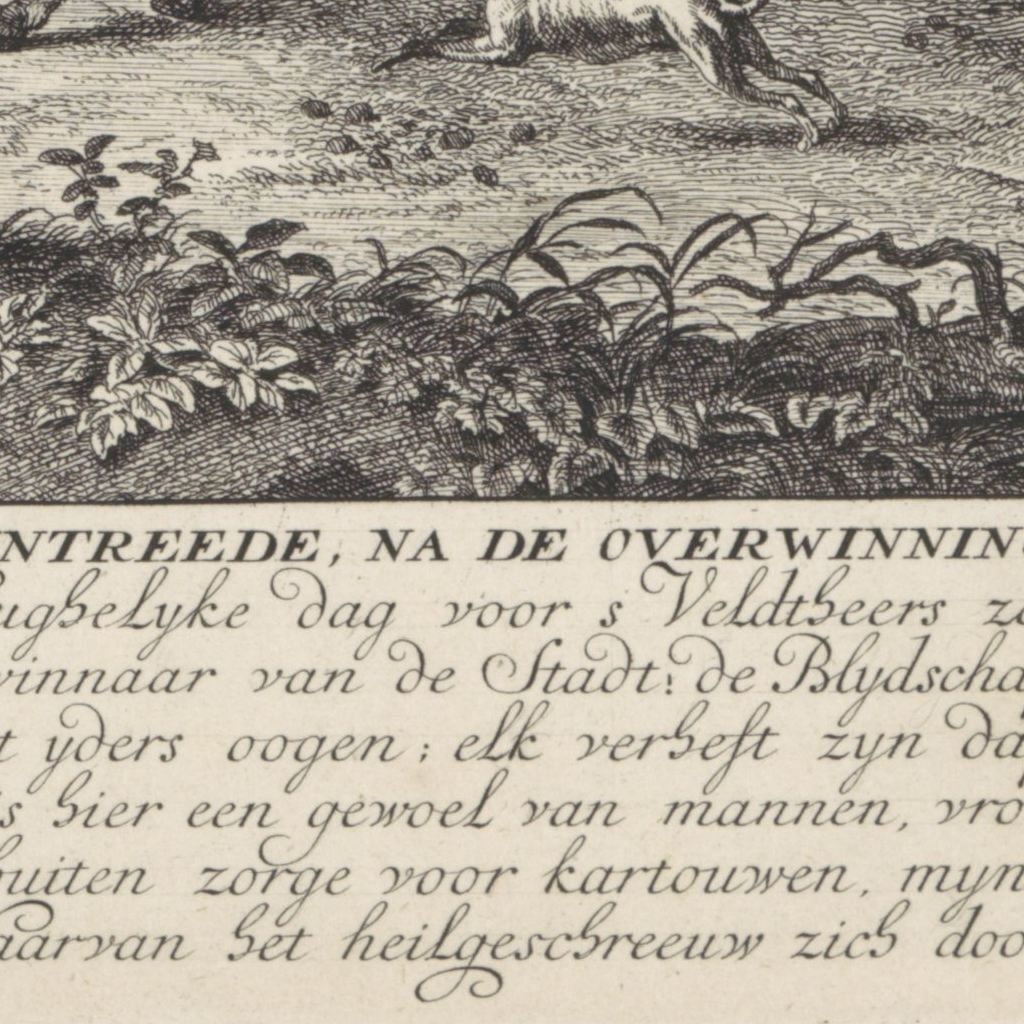 NTREEDE, NA DE OVERWINNIN
ughelyke dag voor s Veldtheers z
vinnaar van de Stadt: de Blydscha
t yders oogen; elk verheft zyn da
s hier een gewoel van mannen, vro
buiten zorge voor kartouwen, myn
aarvan het heilgeschreeuw zich doo